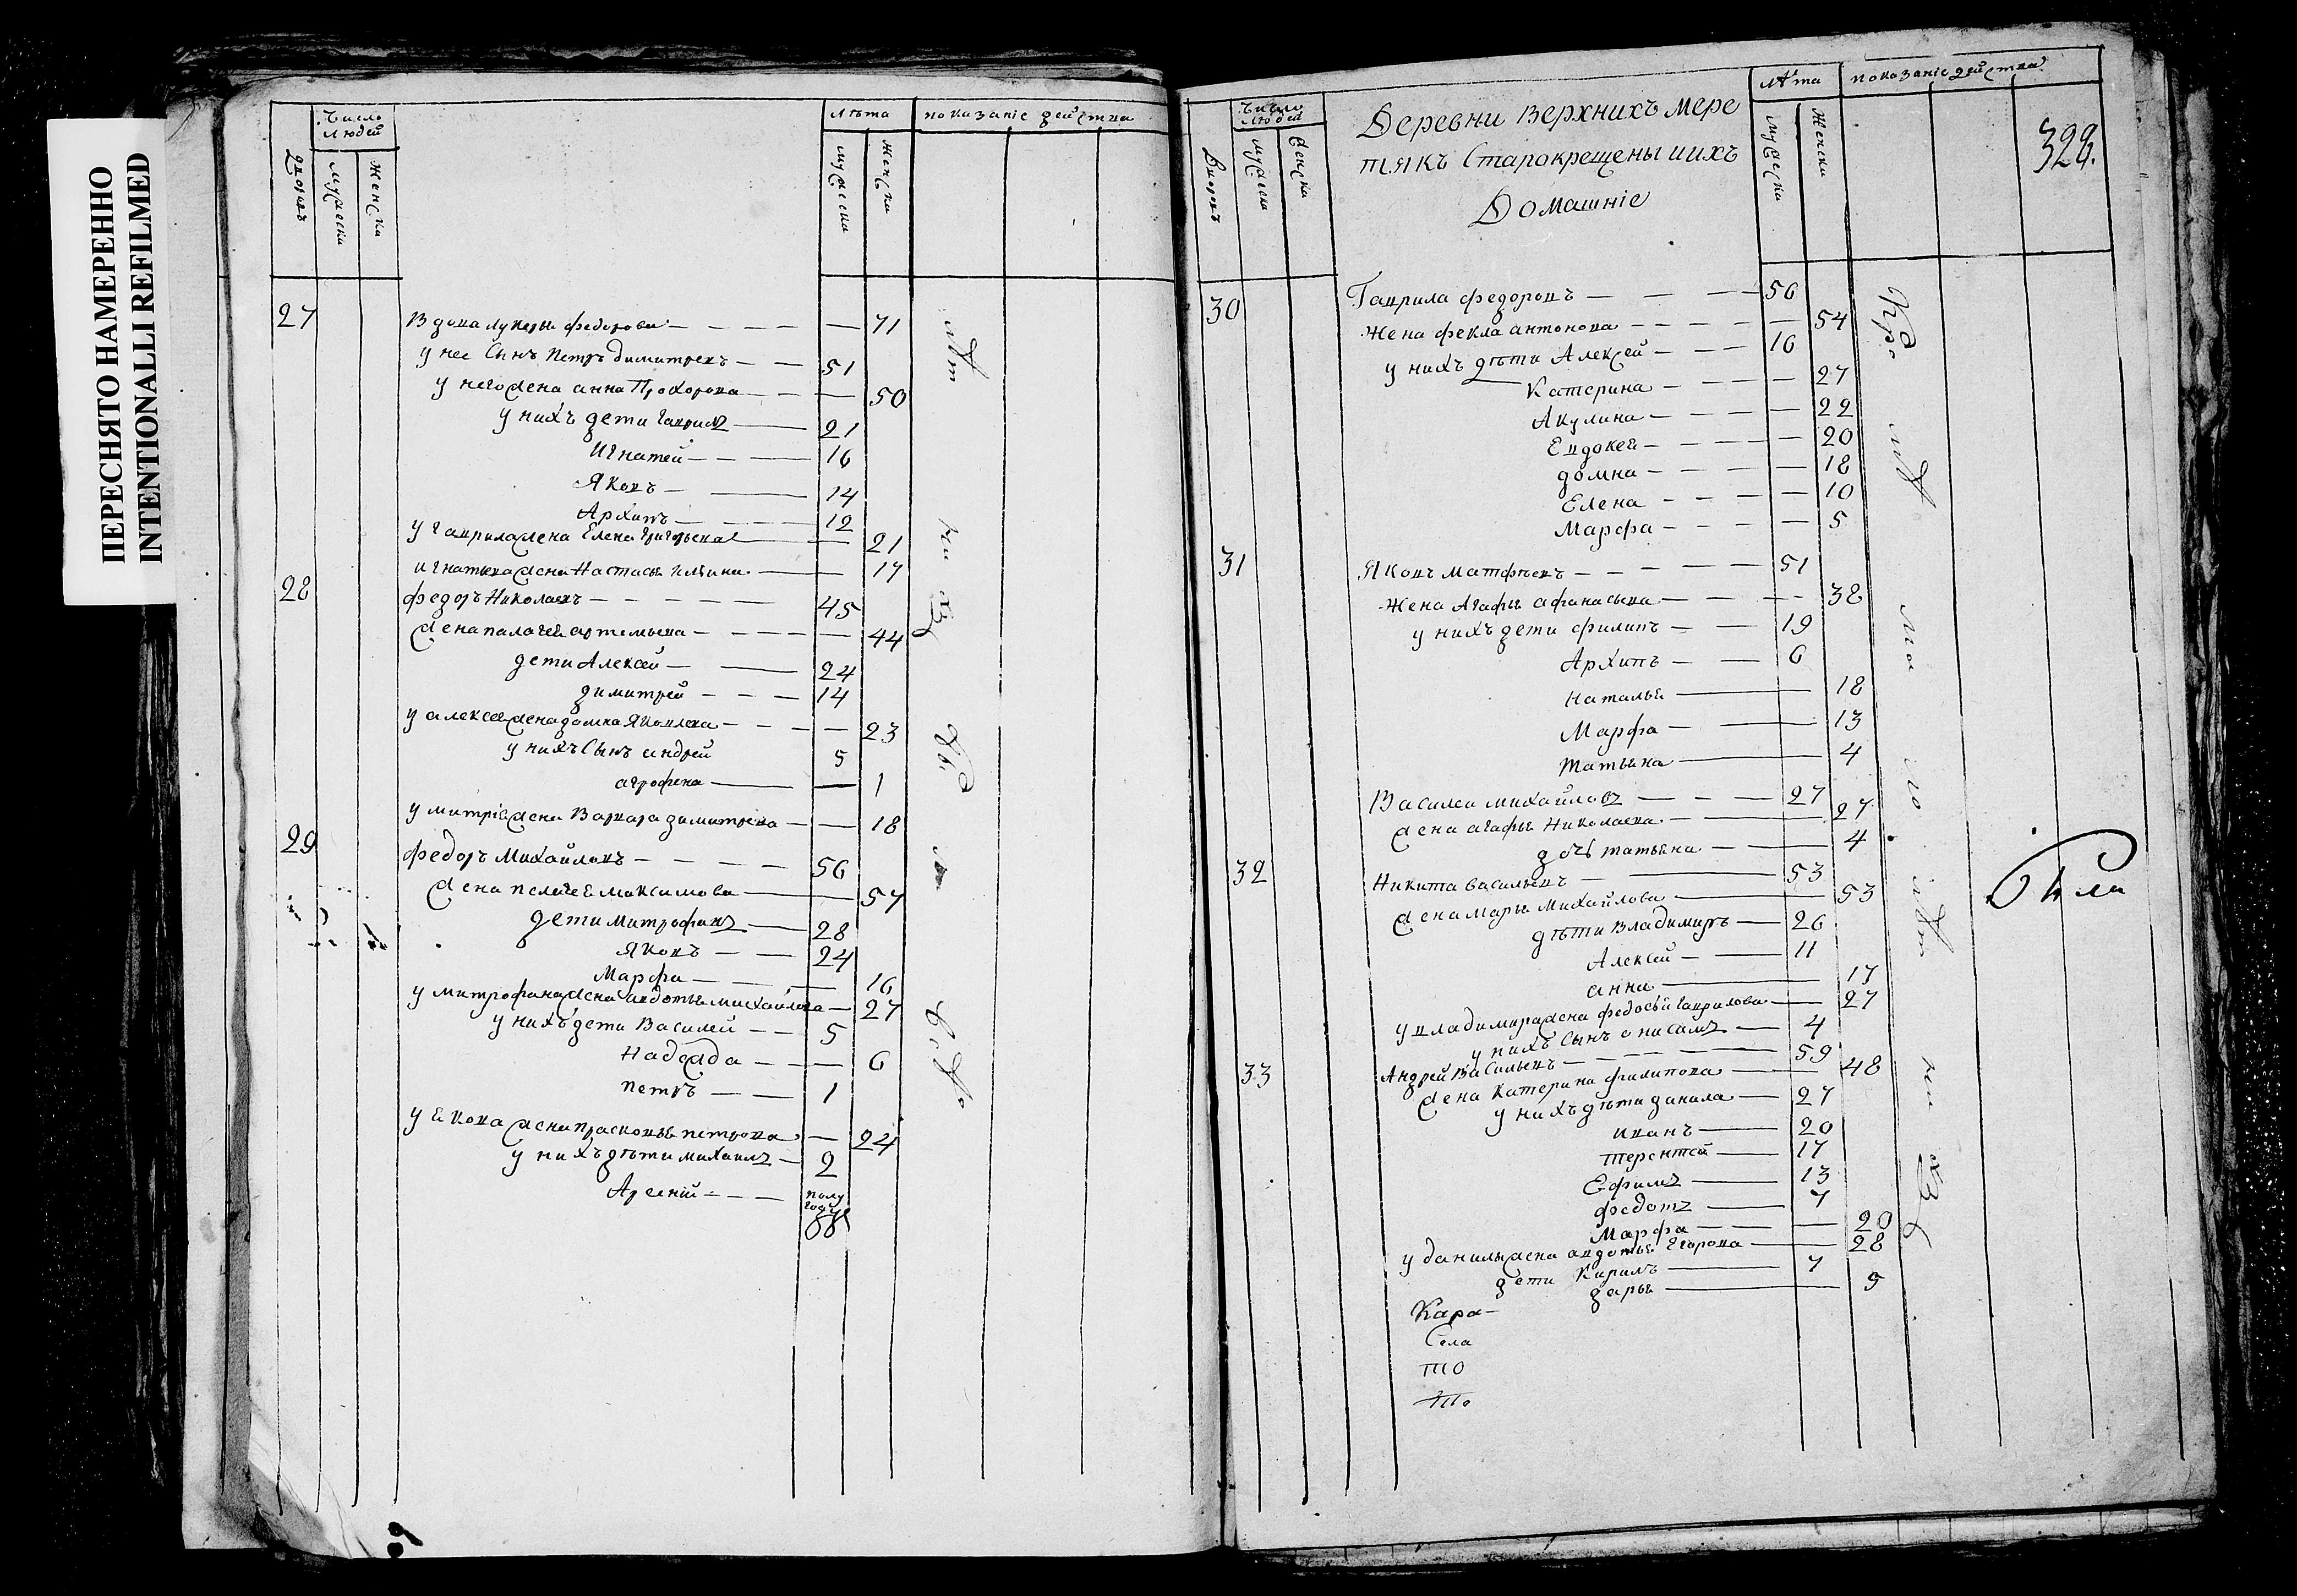 ПЕРЕСНЯТО НАМЕРЕННО
INTENTIONALLI REFILMED
Число людей
дворовъ
мужеска
женска
лѣта
мужеска
женска
показаніе действа
27
Вдова лукерья федорова — 71
у нее сынъ петръ димитревъ — 51
у него жена анна Прохорова — 50
у нихъ дети гаврилъ — 21
Игнатей — 16
Яковъ — 14
Архипъ — 12
у гаврила жена Елена григорьева — 21
игнатьева жена Настасья — 17
28
федоръ Николаевъ — 45
жена палагея артемьева — 44
дети Алексей — 24
димитрей — 14
у алексея жена домна Яковлева — 23
у нихъ сынъ андрей 5
агрофена — 1
у митрія жена Варвара димитрева — 18
29
федоръ Михайловъ — 56
жена пелагея максимова — 57
дети митрофанъ — 28
Яковъ — 24
Марфа — 16
у митрофана жена авдотья михайлова — 27
у нихъ дети Василей — 5
Надежда — 6
петръ — 1
у Якова жена прасковья петрова — 24
у нихъ дѣти михаилъ — 2
Арсеній — полу году
Число людей
Дворовъ
мужеска
женска
Деревни Верхнихъ Мере
тякъ Старокрещены ихъ
Домашніе
лѣта
мужеска
женска
показаніе действа
328.
30
Гаврила федоровъ — 56
Жена фекла антонова — 54
у нихъ дѣти Алексей — 16
Катерина — 27
Акулина — 22
Евдокея — 20
домна — 18
Елена — 10
Марфа — 5
31
Яковъ матфѣевъ — 51
Жена Агафья афанасьева — 38
у нихъ дети филипъ — 19
Архипъ — 6
Наталья — 18
Марфа — 13
татьяна — 4
Василеи михайловъ — 27
жена агафья Николаева — 27
дочь татьяна — 4
32
Никита васильевъ — 53
жена марья Михайлова — 53
дѣти владимиръ — 26
Алексей — 11
анна — 17
у владимира жена федосья гаврилова — 27
у нихъ сынъ онисимъ — 4
33
Андрей Васильевъ — 59
жена Катерина филипова — 48
у нихъ дѣти данила — 27
иванъ — 20
терентей — 17
Ефимъ — 13
федотъ — 7
Марфа — 20
у данилы жена авдотья Егорова — 28
дети Кирилъ — 7
дарья — 5
Кара-
Села
то
то